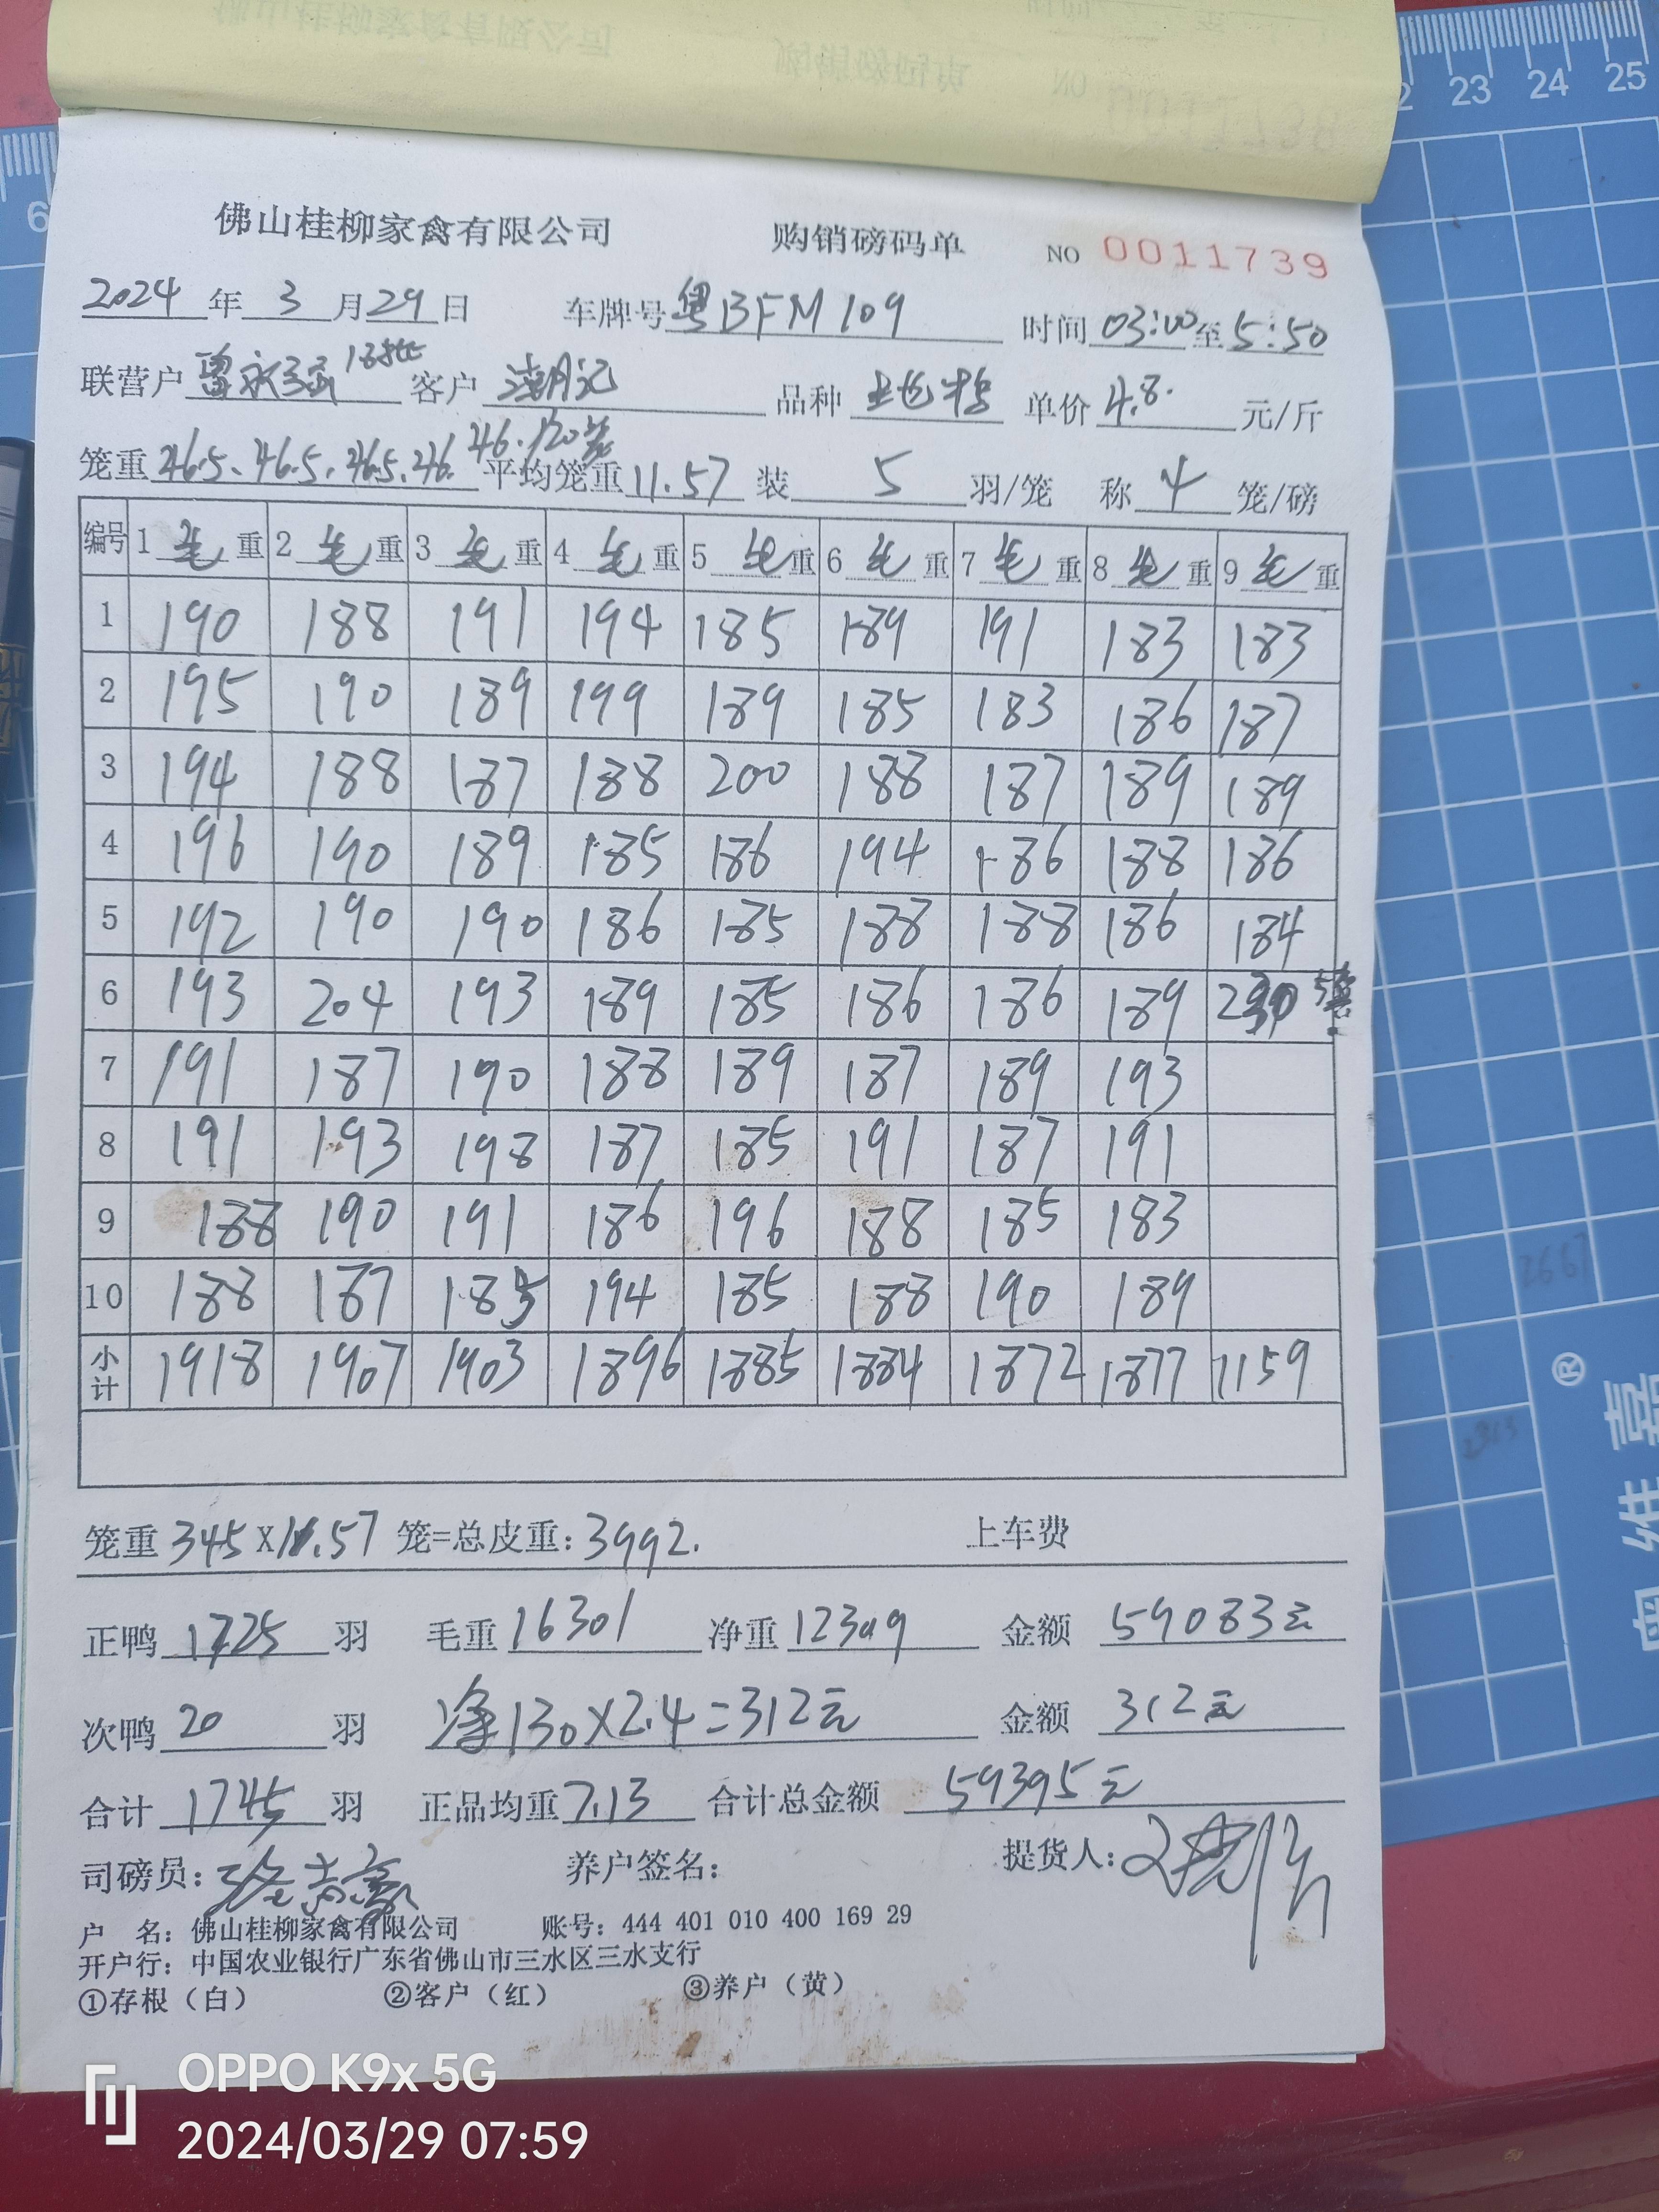 佛山桂柳家禽有限公司 购销磅码单 NO 0011739
2024年3月29日 车牌号粤BFM109 时间03:00至5:50
联营户曾永强 客户潮记 品种 单价4.8.元/斤
笼重46.5、46.5、46.5、46. 46. 平均笼重11.57 装5羽/笼 称4笼/磅
编号 1毛重 2毛重 3毛重 4毛重 5毛重 6毛重 7毛重 8毛重 9毛重
1 190 188 191 194 185 189 191 183 183
2 195 190 189 199 189 185 183 186 187
3 194 188 187 188 200 188 187 189 189
4 196 190 189 185 186 194 186 188 186
5 192 190 190 186 185 188 188 186 184
6 193 204 193 189 185 186 186 189
7 191 187 190 188 189 187 189 193
8 191 193 198 187 185 191 187 191
9 188 190 191 186 196 188 185 183
10 188 187 185 194 185 188 190 189
小计 1918 1907 1903 1896 1885 1884 1872 1877 1159
笼重345X11.57笼=总皮重:3992. 上车费
正鸭1725羽 毛重16301 净重12309 金额59083元
次鸭20羽 净130X2.4=312元 金额312元
合计1745羽 正品均重7.13 合计总金额59395元
司磅员: 养户签名: 提货人:
户 名: 佛山桂柳家禽有限公司 账号: 444 401 010 400 169 29
开户行: 中国农业银行广东省佛山市三水区三水支行
①存根（白） ②客户（红） ③养户（黄）
OPPO K9x 5G
2024/03/29 07:59
22 23 24 25
6
®